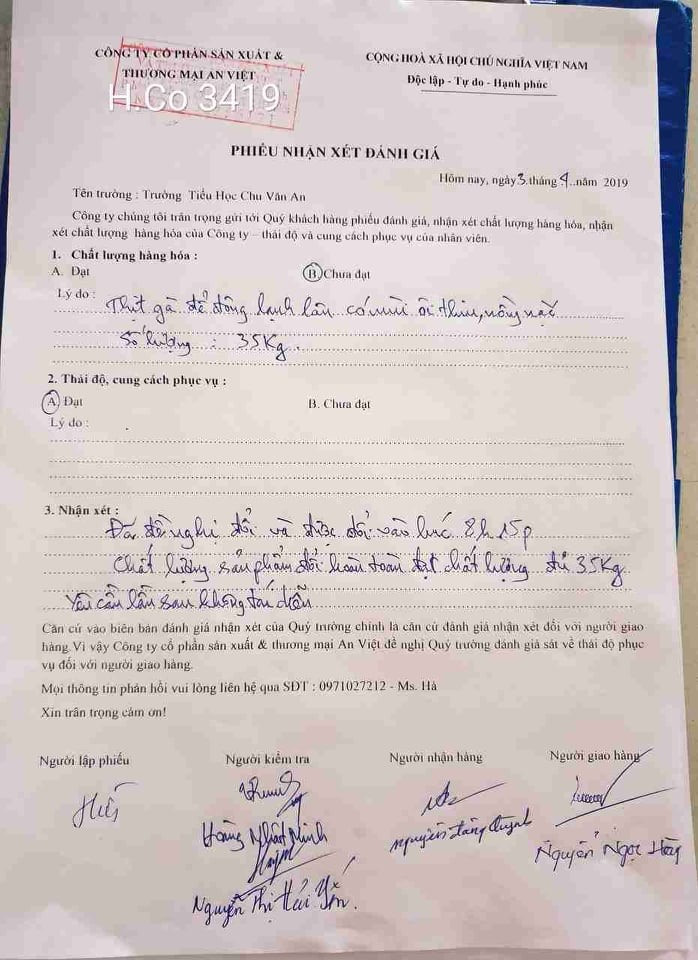 CÔNG TY CỔ PHẦN SẢN XUẤT &
THƯƠNG MẠI AN VIỆT
H.Co 3419
CỘNG HOÀ XÃ HỘI CHỦ NGHĨA VIỆT NAM
Độc lập - Tự do - Hạnh phúc
PHIẾU NHẬN XÉT ĐÁNH GIÁ
Hôm nay, ngày 3. tháng 4..năm 2019
Tên trường : Trường Tiểu Học Chu Văn An
Công ty chúng tôi trân trọng gửi tới Quý khách hàng phiếu đánh giá, nhận xét chất lượng hàng hóa, nhận
xét chất lượng hàng hóa của Công ty – thái độ và cung cách phục vụ của nhân viên.
1. Chất lượng hàng hóa :
A. Đạt
B Chưa đạt
Lý do :
Thịt gà để đông lạnh lâu có mùi ôi thiu, nồng nặc
Số lượng : 35Kg.
2. Thái độ, cung cách phục vụ :
A Đạt
B. Chưa đạt
Lý do :
3. Nhận xét :
Đã đề nghị đổi và được đổi vào lúc 8h 15p
Chất lượng sản phẩm đổi hoàn toàn đạt chất lượng đủ 35Kg
Yêu cầu lần sau không tái diễn
Căn cứ vào biên bản đánh giá nhận xét của Quý trường chính là căn cứ đánh giá nhận xét đối với người giao
hàng.Vì vậy Công ty cổ phần sản xuất & thương mại An Việt đề nghị Quý trường đánh giá sát về thái độ phục
vụ đối với người giao hàng.
Mọi thông tin phản hồi vui lòng liên hệ qua SĐT : 0971027212 - Ms. Hà
Xin trân trọng cảm ơn!
Người lập phiếu
Người kiểm tra
Người nhận hàng
Người giao hàng
Hoàng Nhật Minh
Nguyễn Thị Hải Yến.
Nguyễn Đăng Quỳnh
Nguyễn Ngọc